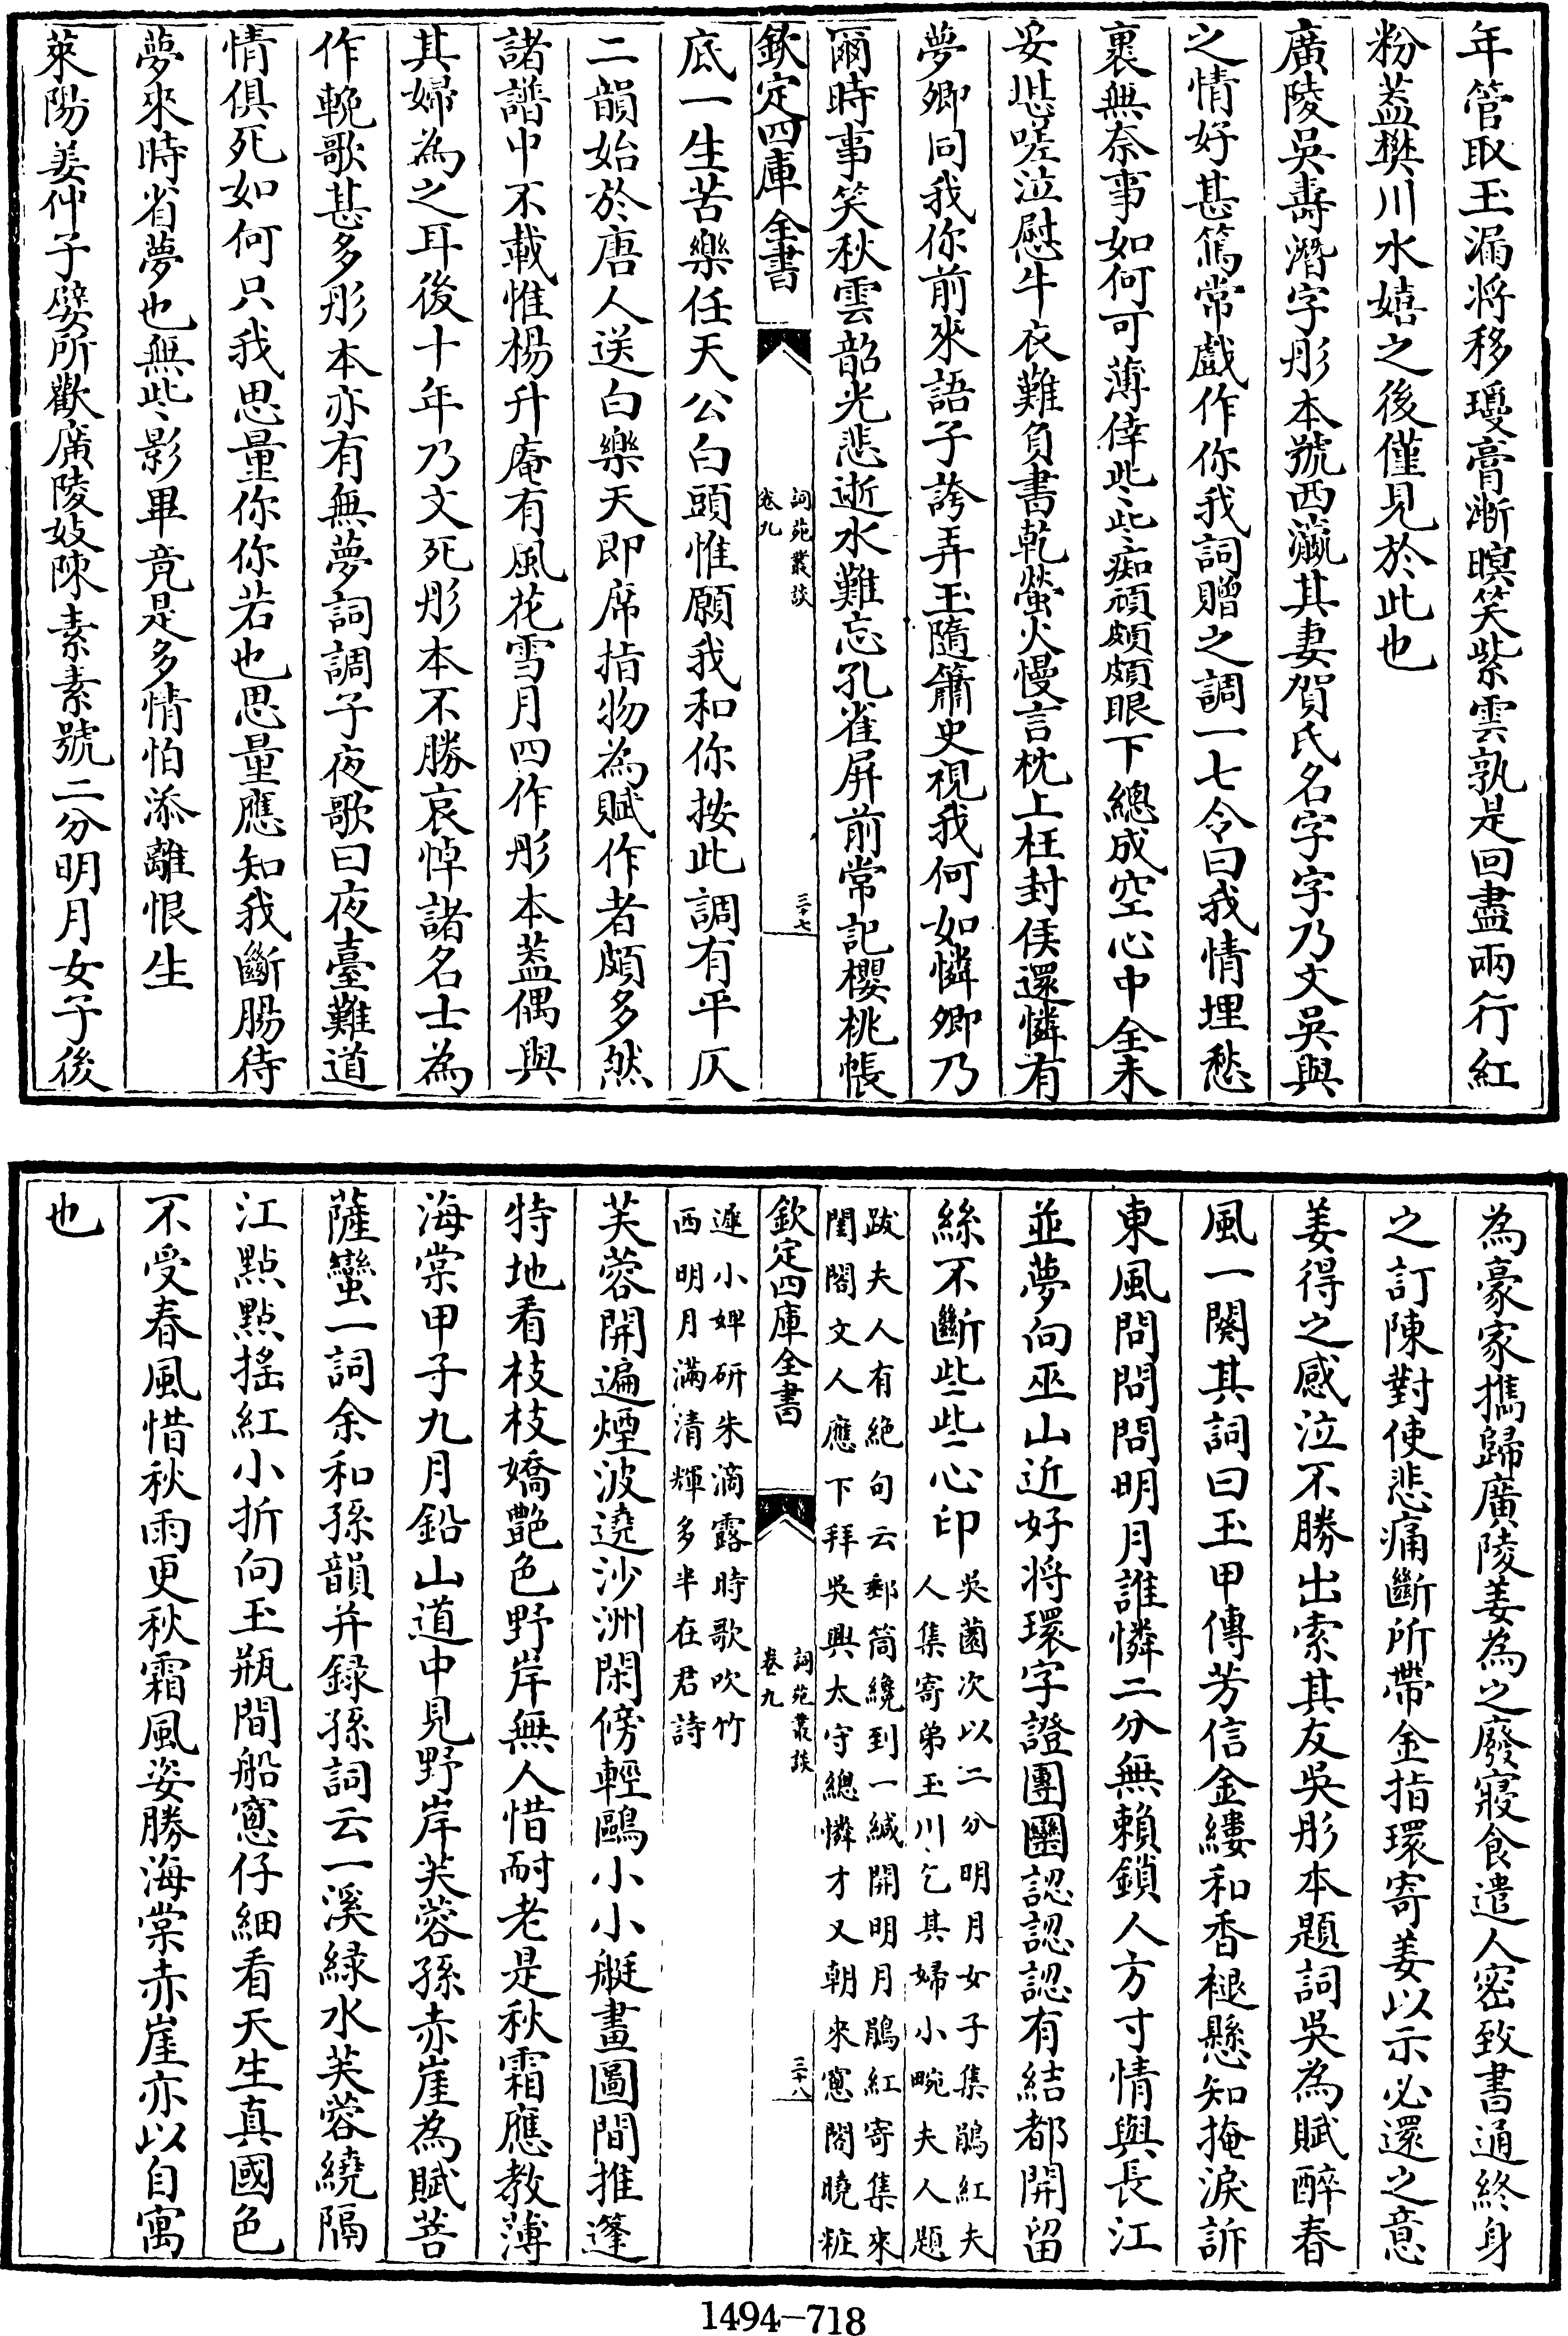 年管取玉漏將移瓊膏漸暝笑紫雲孰是回盡兩行紅
粉蓋樊川水嬉之後僅見於此也
廣陵吳壽潛字彤本號西瀛其妻賀氏名字字乃文吳與
之情好甚篤常戲作你我詞贈之調一七令曰我情埋愁
裏無奈事如何可薄倖些些痴頑頗頗眼下總成空心中全未
妥懸嗟泣慰牛衣難負書乾螢火慢言枕上枉封侯還憐有
夢卿同我你前來語子誇弄玉隨簫史視我何如憐卿乃
爾時事笑秋雲韶光悲逝水難忘孔雀屏前常記櫻桃帳
欽定四庫全書
詞苑叢談
卷九
三十七
底一生苦樂任天公白頭惟願我和你按此調有平仄
二韻始於唐人送白樂天即席指物為賦作者頗多然
諸譜中不載惟楊升庵有風花雪月四作彤本蓋偶與
其婦為之耳後十年乃文死彤本不勝哀悼諸名士為
作輓歌甚多彤本亦有無夢詞調子夜歌曰夜臺難道
情俱死如何只我思量你你若也思量應知我斷腸待
夢來時省夢也無些影畢竟是多情怕添離恨生
萊陽姜仲子嬖所歡廣陵妓陳素素號二分明月女子後
為豪家攜歸廣陵姜為之廢寢食遣人密致書通終身
之訂陳對使悲痛斷所帶金指環寄姜以示必還之意
姜得之感泣不勝出索其友吳彤本題詞吳為賦醉春
風一闋其詞曰玉甲傳芳信金縷和香褪懸知掩淚訴
東風問問問明月誰憐二分無賴鎖人方寸情與長江
並夢向巫山近好將環字證團圞認認認有結都開留
絲不斷些些心印
吳薗次以二分明月女子集鵑紅夫
人集寄弟玉川乞其婦小畹夫人題
跋夫人有絶句云郵筒纔到一緘開明月鵑紅寄集來
閨閣文人應下拜吳興太守總憐才又朝來窻閣曉粧
欽定四庫全書
詞苑叢談
卷九
三十八
遲小婢硏朱滴露時歌吹竹
西明月滿清輝多半在君詩
芙蓉開遍煙波遶沙洲閑傍輕鷗小小艇畫圖間推篷
特地看枝枝嬌艷色野岸無人惜耐老是秋霜應教薄
海棠甲子九月鉛山道中見野岸芙蓉孫赤崖為賦菩
薩蠻一詞余和孫韻并録孫詞云一溪緑水芙蓉繞隔
江點點搖紅小折向玉瓶間船窻仔細看天生真國色
不受春風惜秋雨更秋霜風姿勝海棠赤崖亦以自寓
也
1494-718